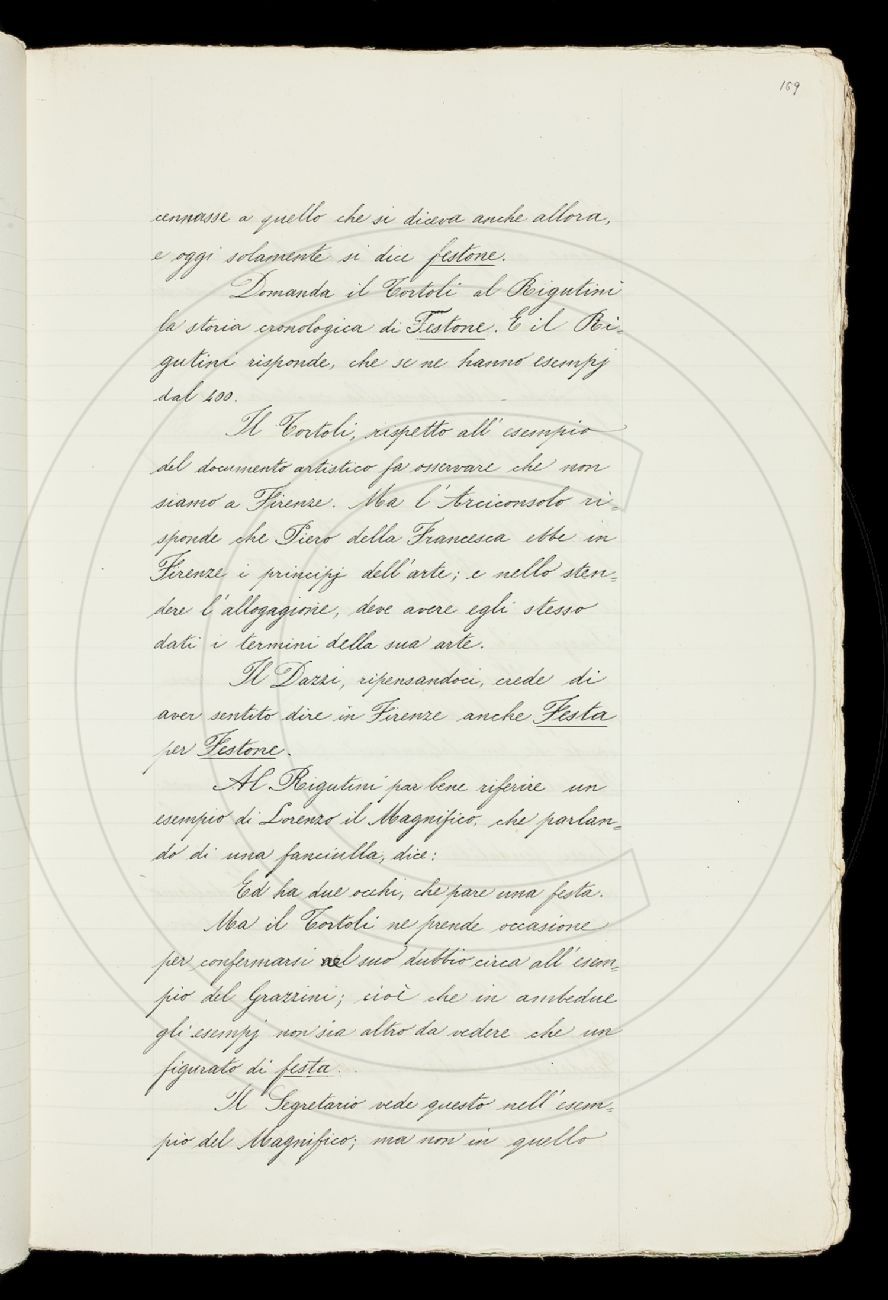 169
cennasse a quello che si diceva anche allora,
e oggi solamente si dice festone.
Domanda il Tortoli al Rigutini
la storia cronologica di Festone. E il Ri=
gutini risponde, che se ne hanno esempj
dal 400.
Il Tortoli, rispetto all'esempio
del documento artistico fa osservare che non
siamo a Firenze. Ma l'Arciconsolo ri=
sponde che Piero della Francesca ebbe in
Firenze i principj dell'arte; e nello sten=
dere l'allogagione, deve avere egli stesso
dati i termini della sua arte.
Il Dazzi, ripensandoci, crede di
aver sentito dire in Firenze anche Festa
per Festone.
Al Rigutini par bene riferire un
esempio di Lorenzo il Magnifico, che parlan=
do di una fanciulla, dice:
Ed ha due occhi, che pare una festa.
Ma il Tortoli ne prende occasione
per confermarsi nel suo dubbio circa all'esem=
pio del Grazzini; cioè che in ambedue
gli esempj non sia altro da vedere che un
figurato di festa.
Il Segretario vede questo nell'esem=
pio del Magnifico; ma non in quello